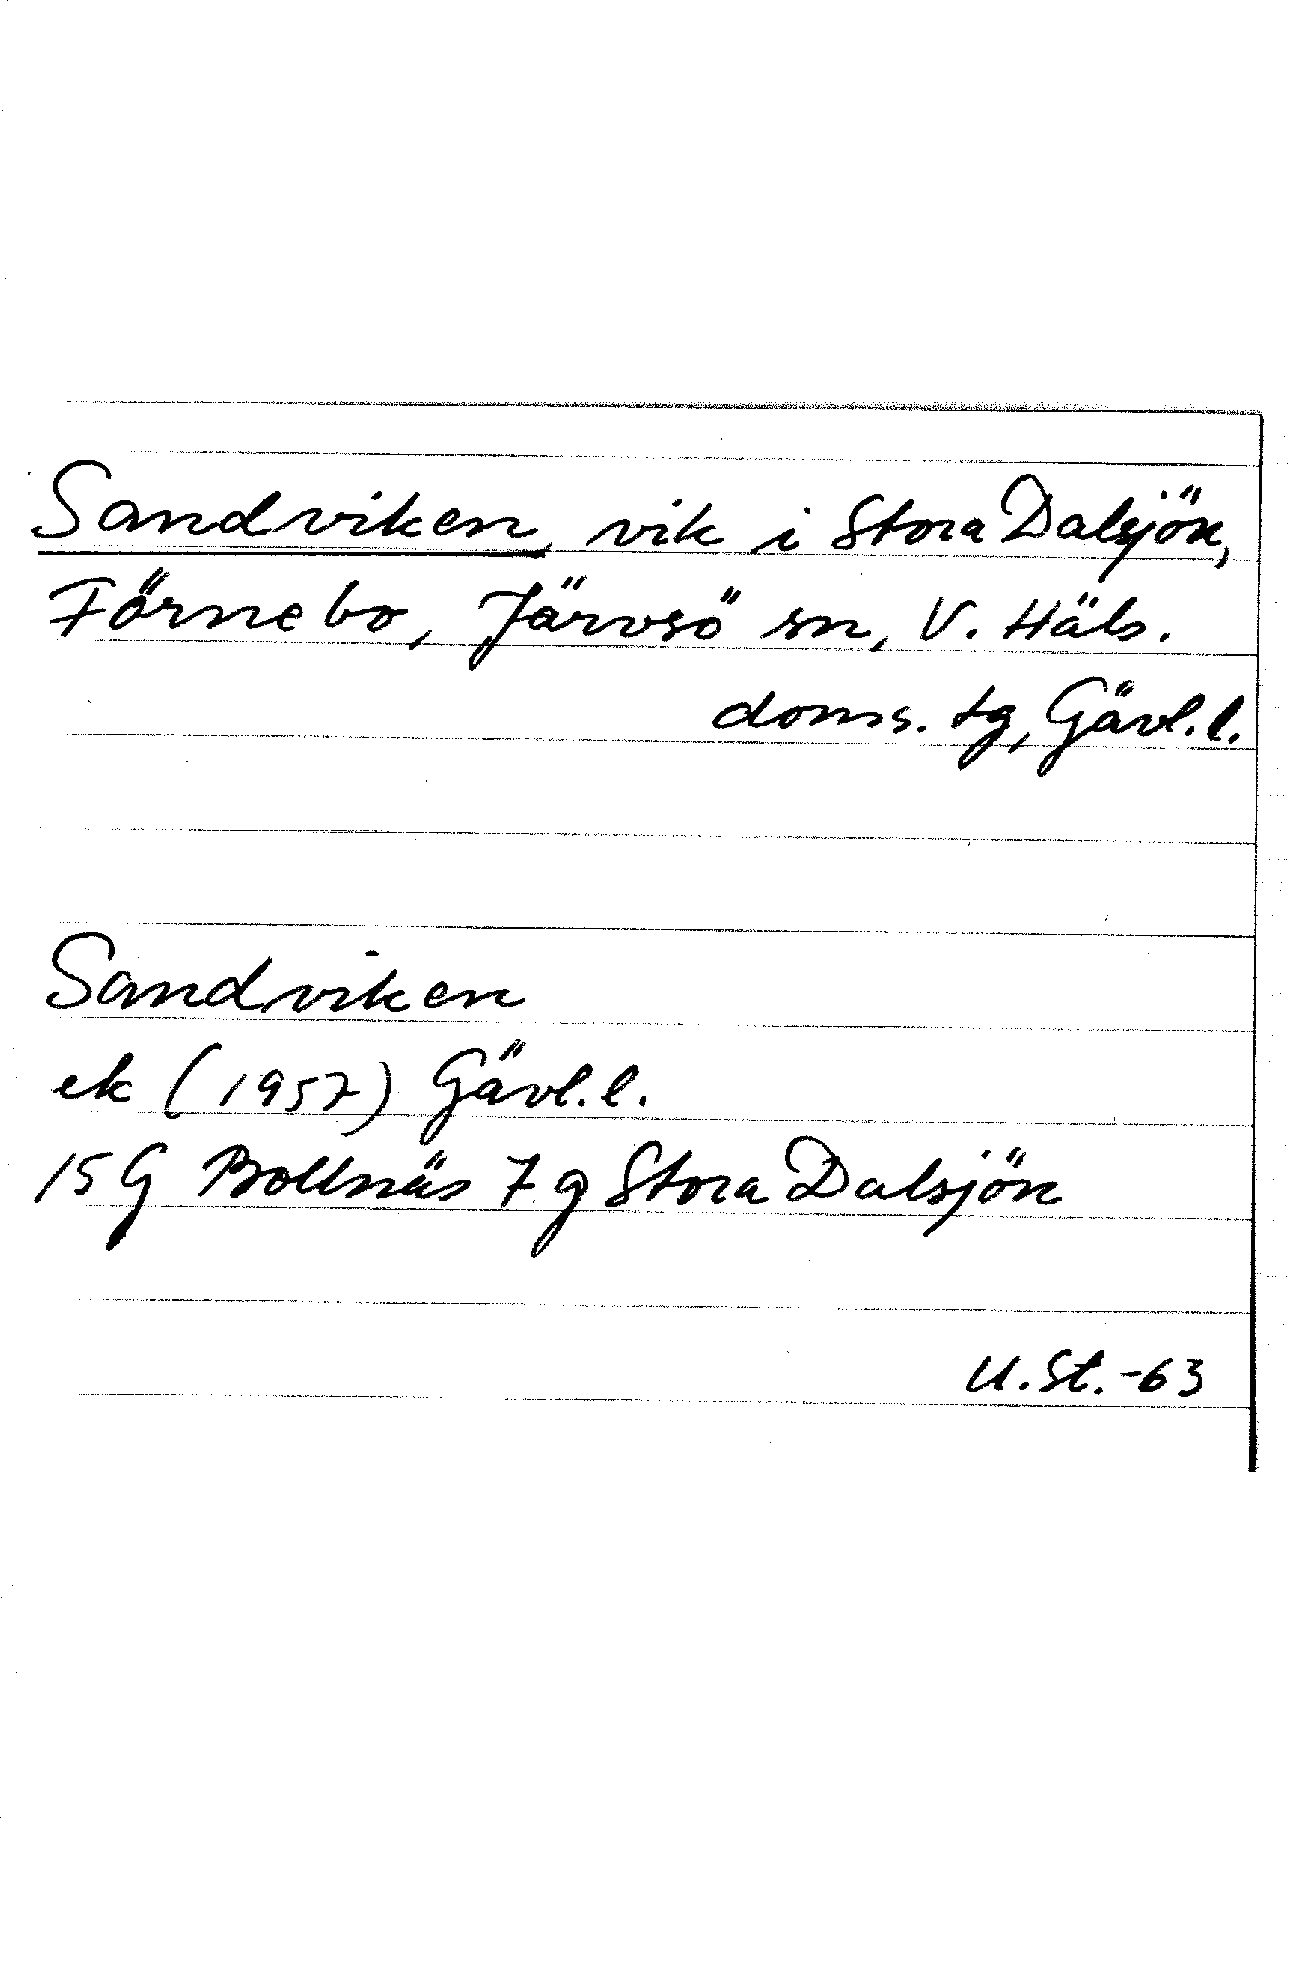 Sandviken, vik i Stora Dalsjön,
Förnebo, Järvsö sn, V. Häls.
doms. tg, Gävl.l.
Sandviken
ek (1957) Gävl.l.
15 G Bollnäs 7 g Stora Dalsjön
U.St.-63